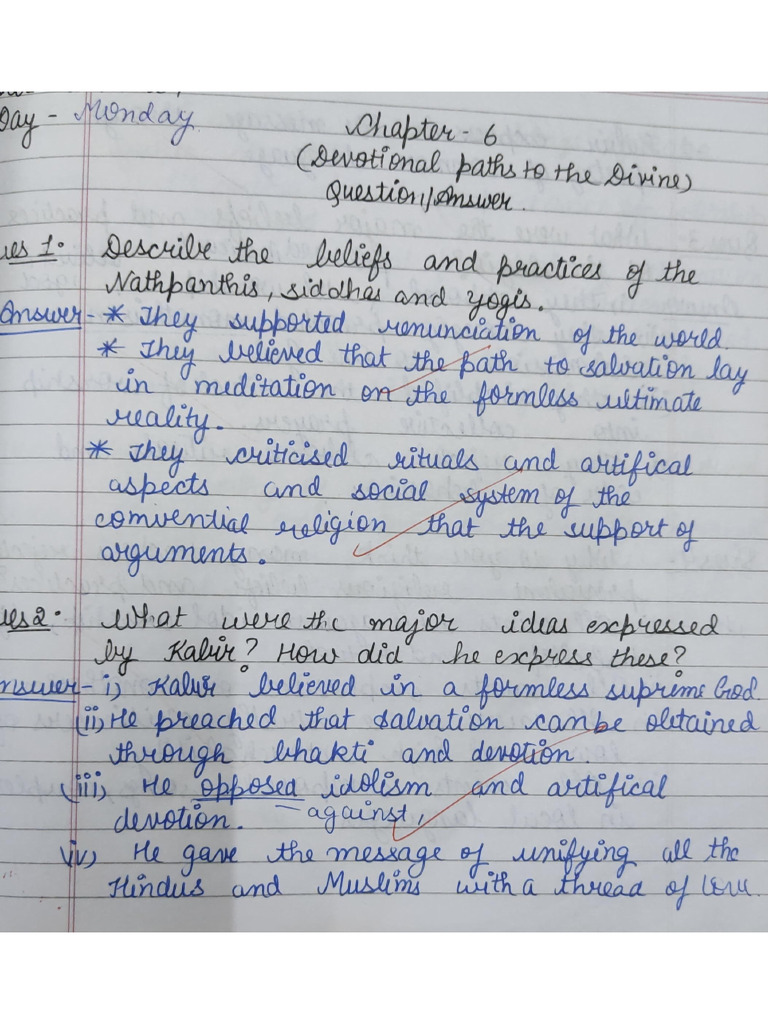 Day - Monday
Chapter - 6
(Devotional paths to the Divine)
Question/Answer.
ues 1. Describe the beliefs and practices of the
Nathpanthis, siddhas and yogis.
Answer - * They supported renunciation of the world.
* They believed that the path to salvation lay
in meditation on the formless ultimate
reality.
* They criticised rituals and artifical
aspects and social system of the
comvential religion that the support of
arguments.
ues 2. What were the major ideas expressed
by Kabir? How did he express these?
nswer - i) Kabir believed in a formless supreme God.
(ii) He preached that salvation can be obtained
through bhakti and devotion.
(iii) He opposed idolism and artifical
devotion. - against,
iv) He gave the message of unifying all the
Hindus and Muslims with a thread of